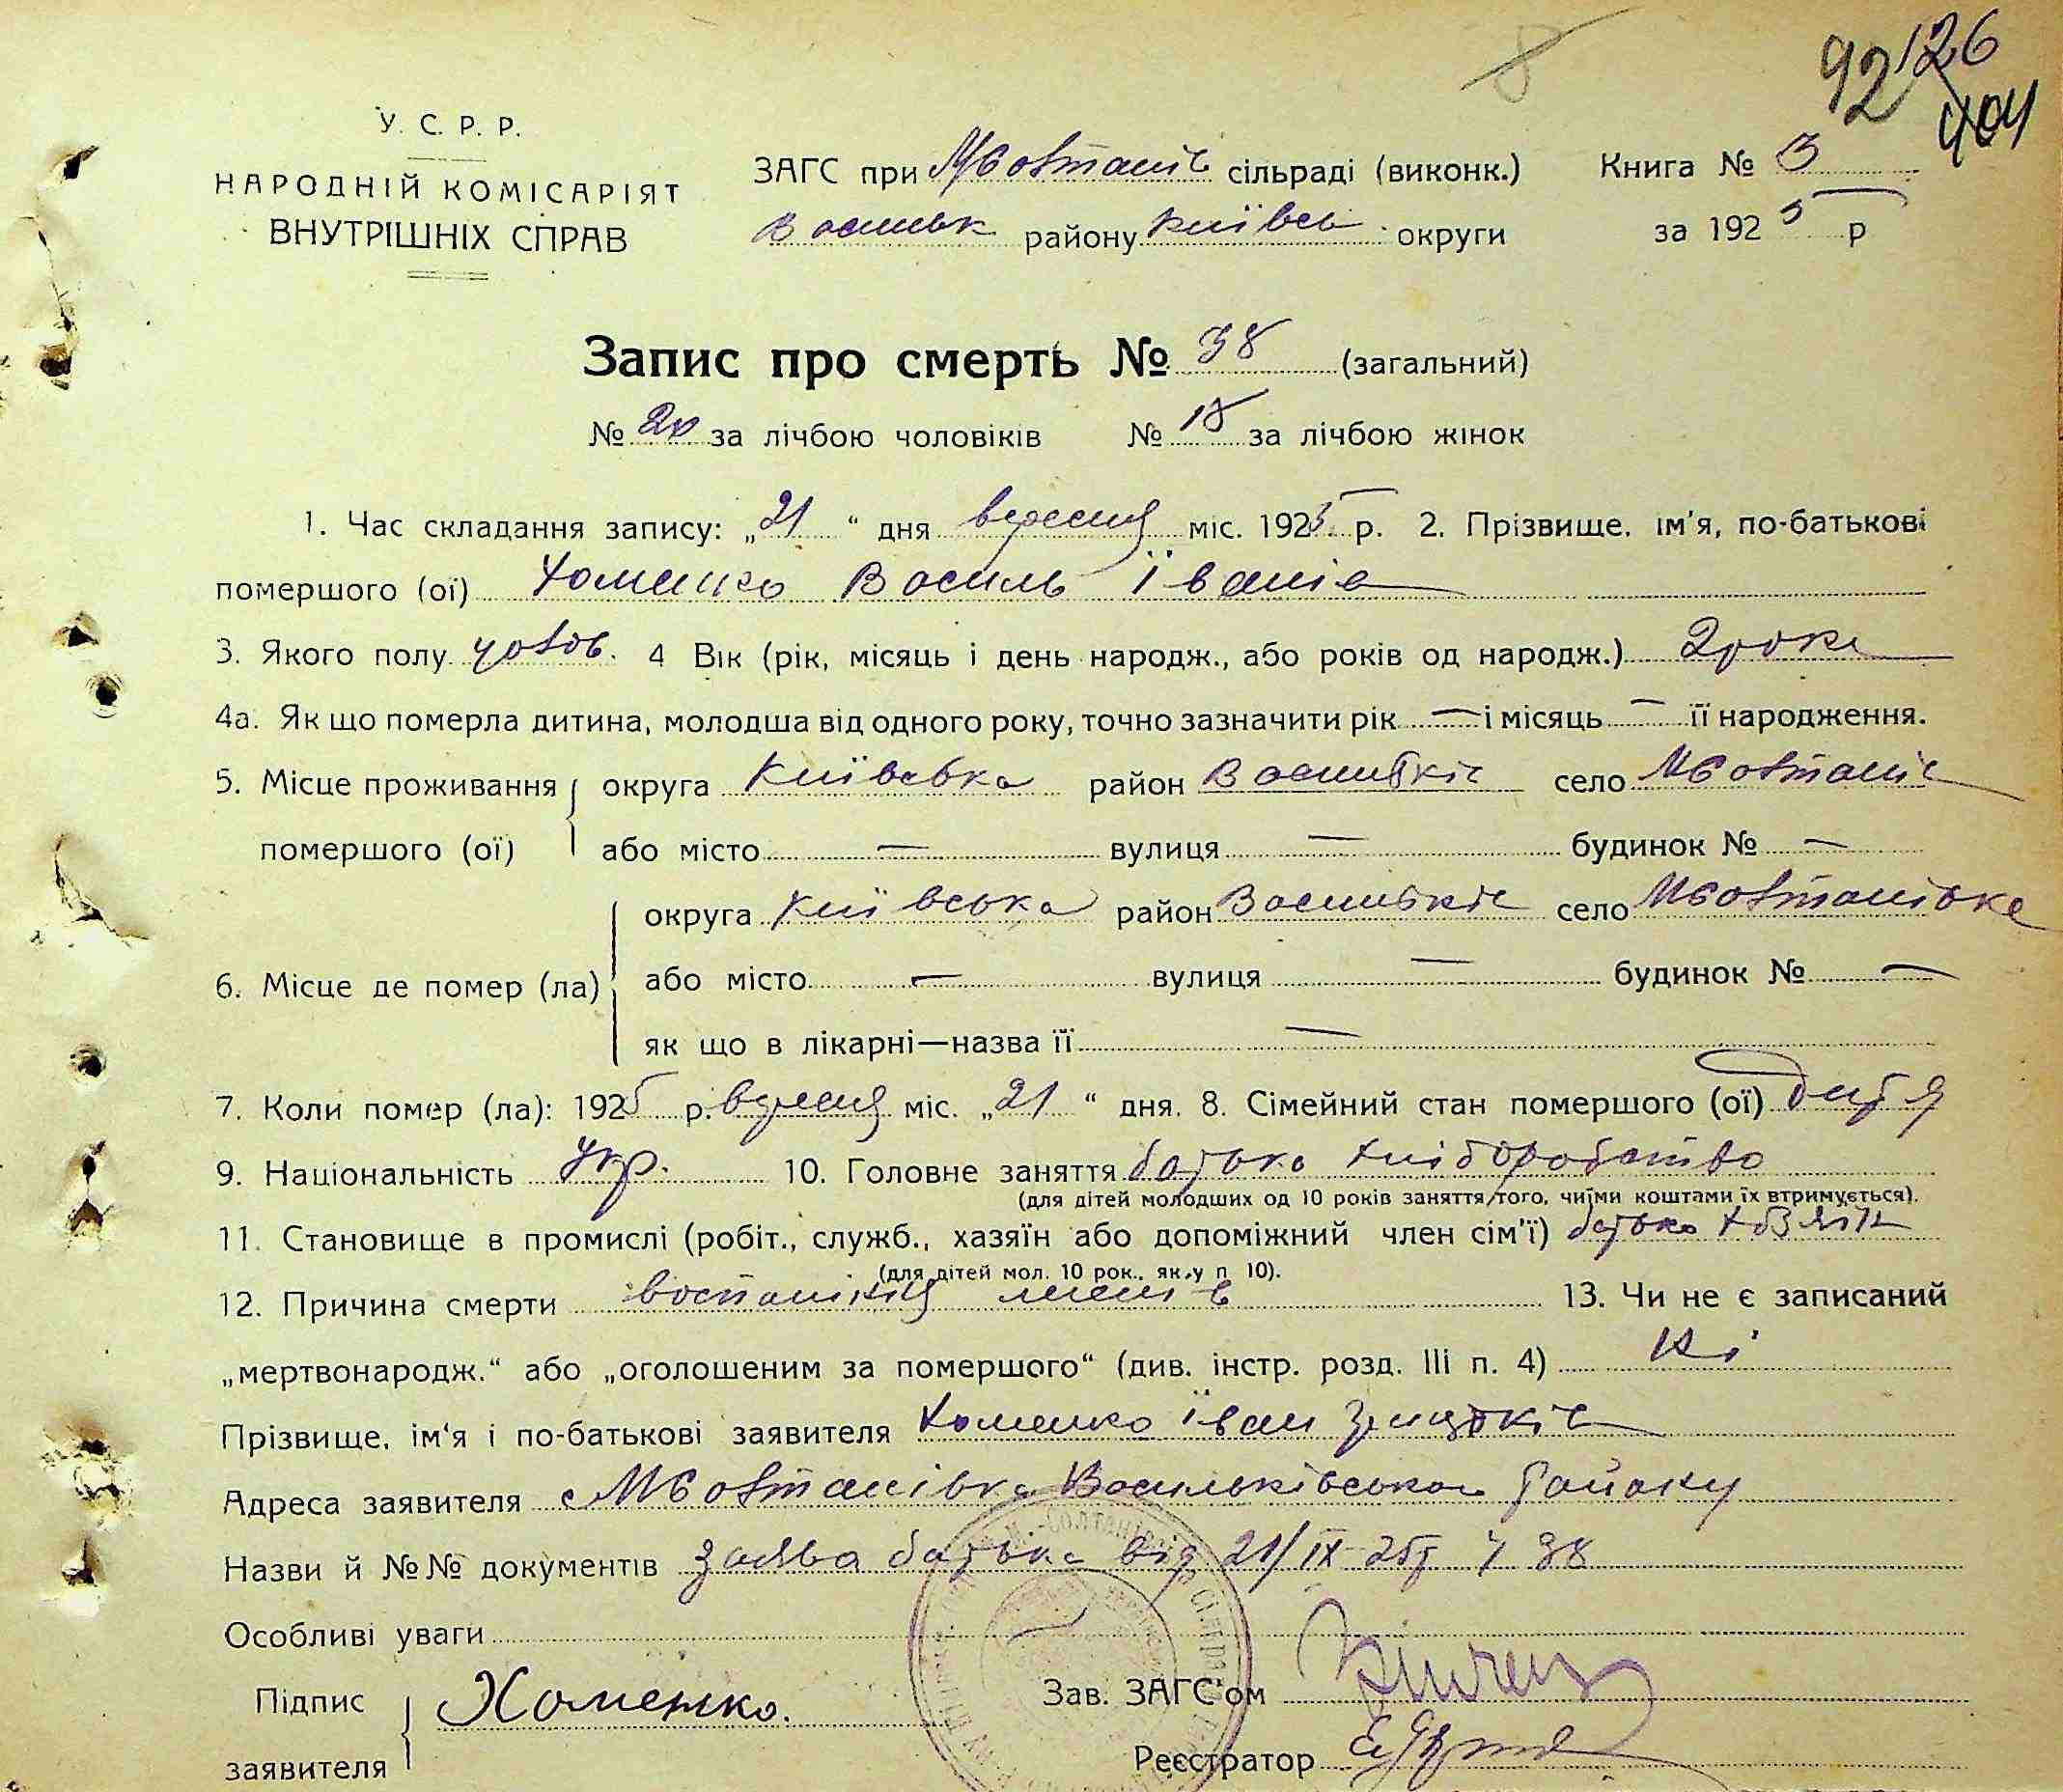 8
92 126
404
У. С. Р. Р.
НАРОДНІЙ КОМІСАРІЯТ
ВНУТРІШНІХ СПРАВ
ЗАГС при МСолтанів сільраді (виконк.)
Васильк району Київсь округи
Книга № 3
за 1925 р
Запис про смерть № 38 (загальний)
№ 20 за лічбою чоловіків № 18 за лічбою жінок
1. Час складання запису: „21“ дня вересня міс. 1925 р. 2. Прізвище, ім'я, по-батькові
помершого (ої) Хоменко Василь Іванів
3. Якого полу чолов. 4 Вік (рік, місяць і день народж., або років од народж.) 2 роки
4а. Як що померла дитина, молодша від одного року, точно зазначити рік — і місяць — її народження.
5. Місце проживання помершого (ої) округа Київська район Василькіс село МСолтаніс
або місто — вулиця — будинок № —
6. Місце де помер (ла) округа Київська район Василькіс село МСолтанівка
або місто — вулиця — будинок № —
як що в лікарні—назва її —
7. Коли помер (ла): 1925 р. вересня міс. „21“ дня. 8. Сімейний стан помершого (ої) дитя
9. Національність Укр. 10. Головне заняття батька хліборобство
(для дітей молодших од 10 років заняття того, чиїми коштами їх втримується).
11. Становище в промислі (робіт., служб., хазяїн або допоміжний член сім'ї) батько хазяїн
(для дітей мол. 10 рок., як у п 10).
12. Причина смерти воспаління 13. Чи не є записаний
„мертвонародж.“ або „оголошеним за помершого“ (див. інстр. розд. III п. 4) Ні
Прізвище, ім'я і по-батькові заявителя Хоменко Іван
Адреса заявителя с МСолтанівка Васильківського Району
Назви й №№ документів Заява батька від 21/IX-25р ч 38
Особливі уваги
Підпис заявителя Хоменко.
Зав. ЗАГС'ом
Реєстратор